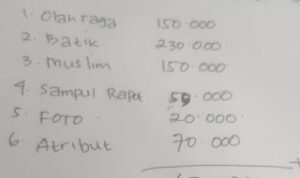 1. Olah raga 150.000
2. Batik 230.000
3. Muslim 150.000
4. Sampul Rapot .000
5. FOTO 20.000
6 Atribut 70.000